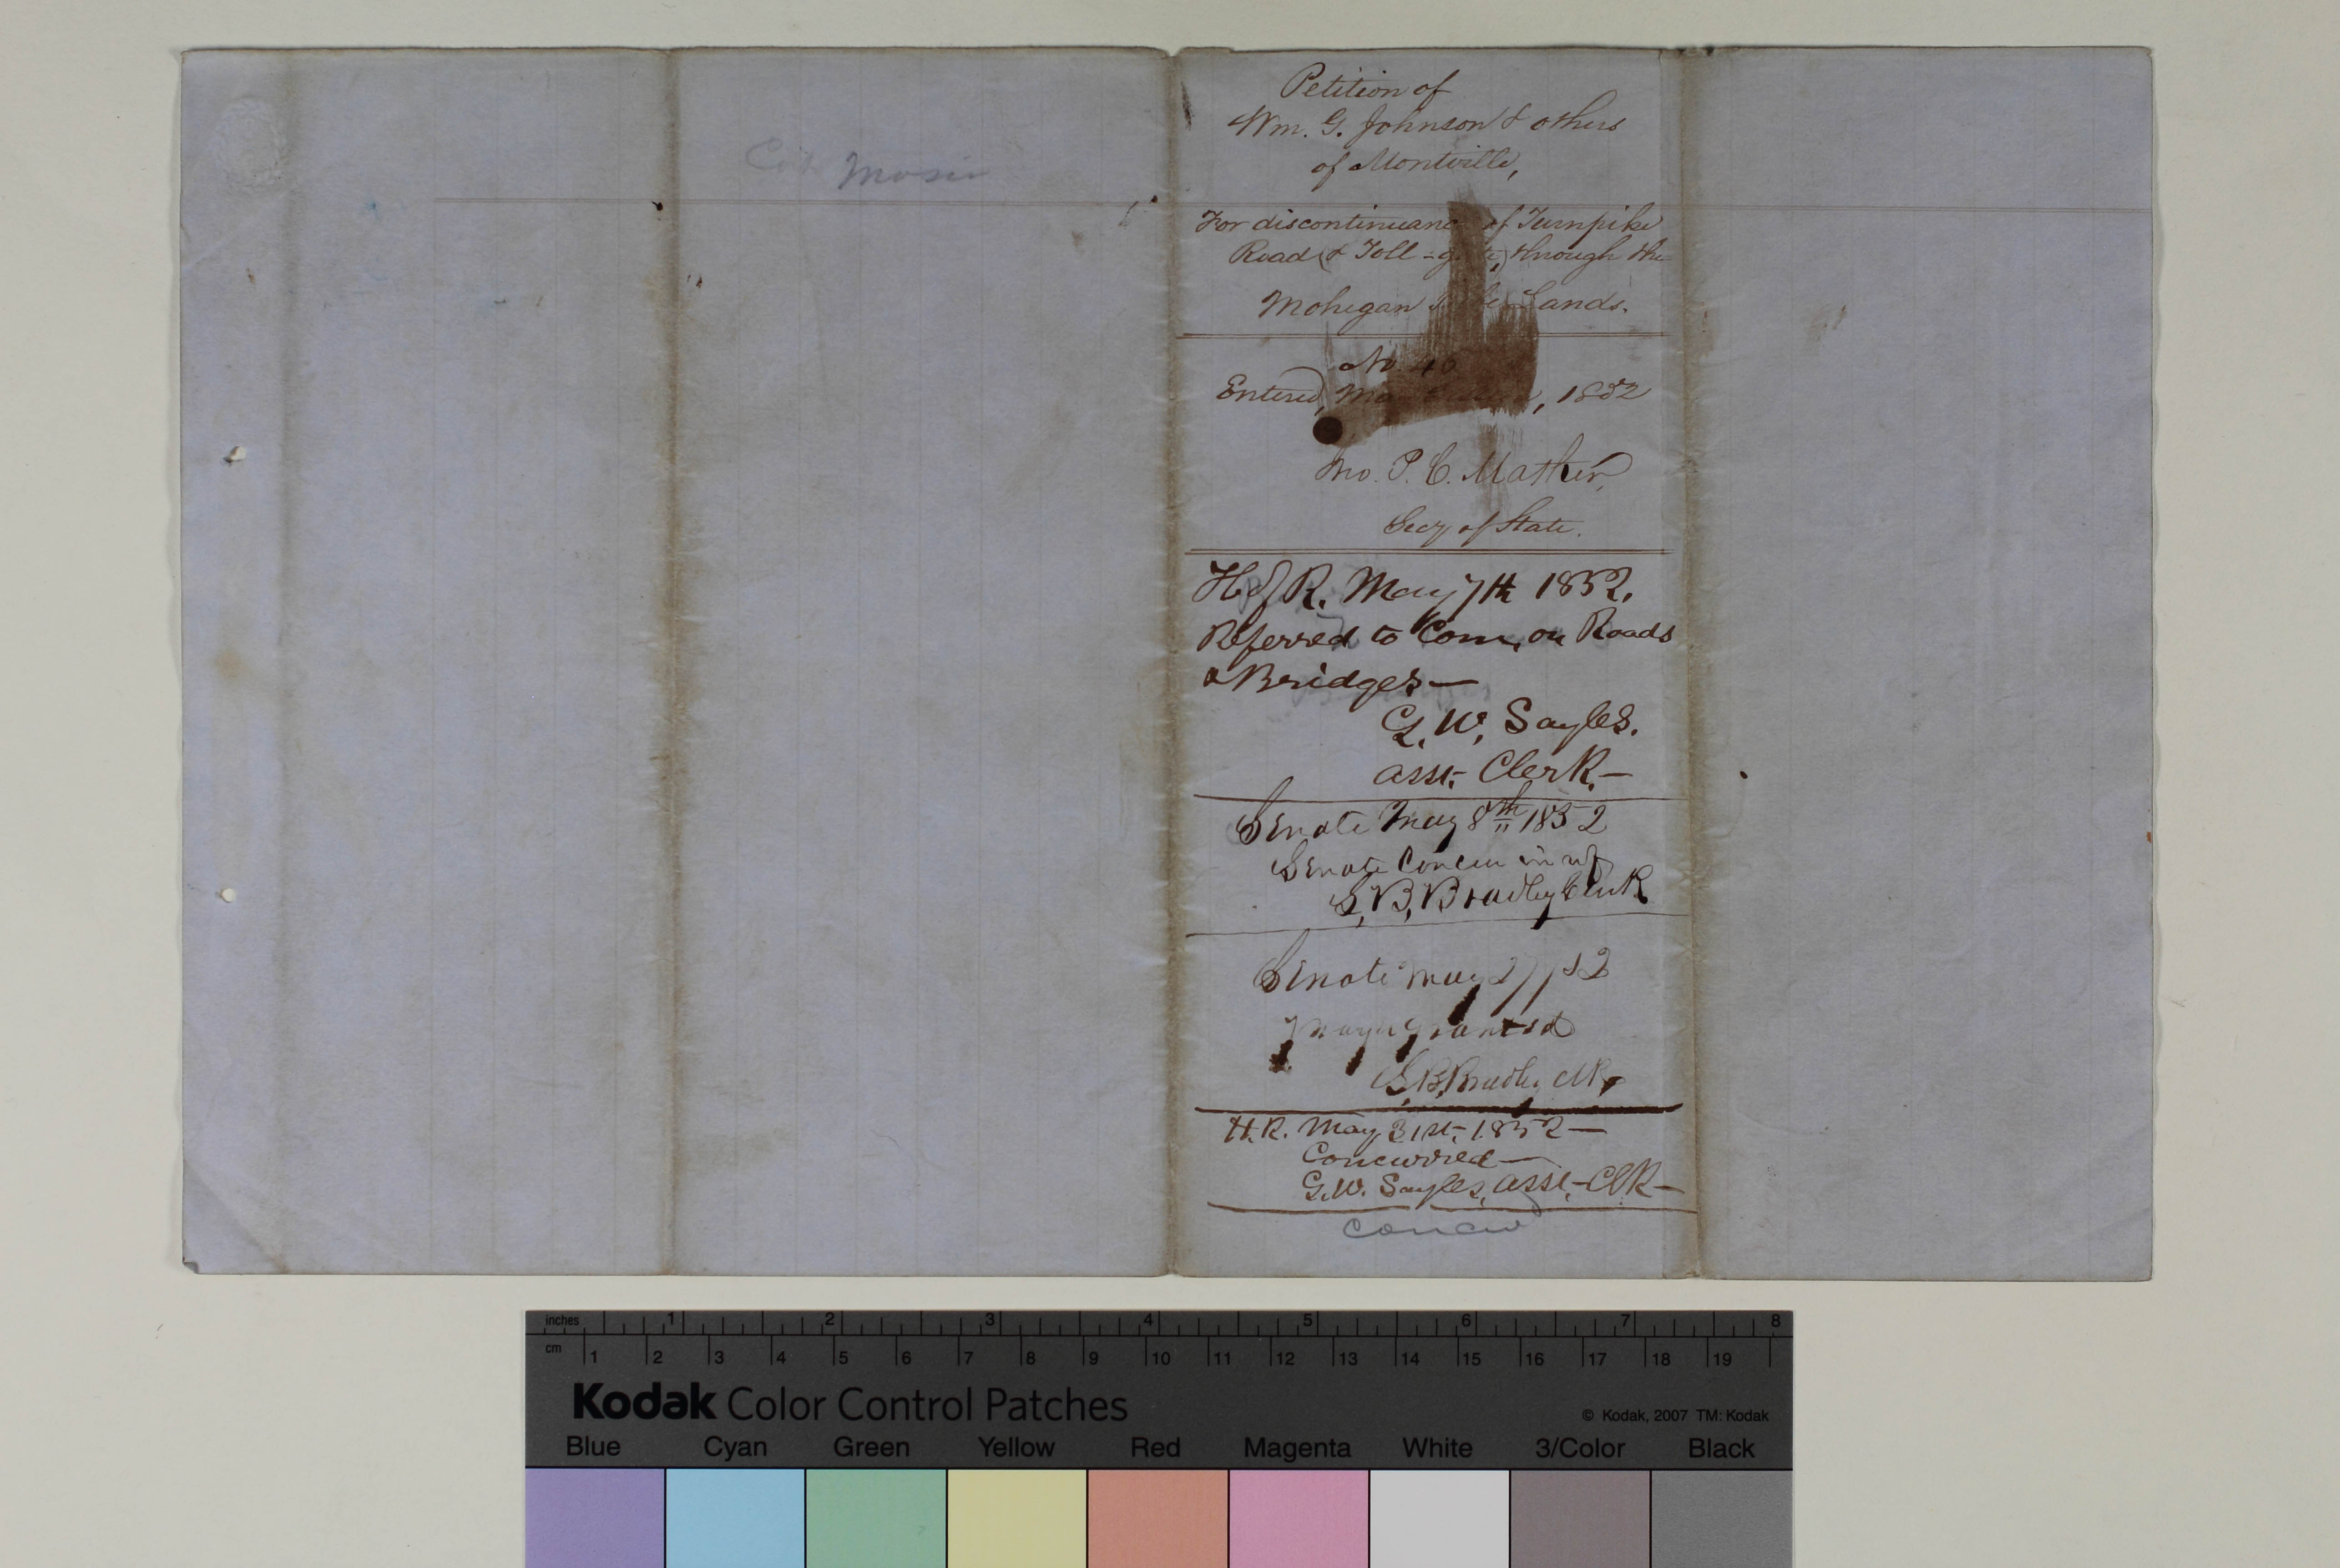 Petition of
Wm. G. Johnson & others
of Montville,
For discontinuance of Turnpike
Road (& Toll-gate,) through the
Mohegan Lands.
No. 40
Entered, 1852
Jno. P. C. Mather,
Secy of State.
H of R. May 7th 1852.
Referred to Com. on Roads
& Bridges—
G. W. Sayles.
asst. Clerk.—
Senate May 8th 1852
Senate Concur in ref
S. B. Bradley Clerk
Senate May 27/52
Prayer granted
S. B. Bradley Clk,
H. R. May 31st, 1852—
Concurred—
G. W. Sayles, asst.-Clk—
Concur
inches 1 2 3 4 5 6 7 8
cm 1 2 3 4 5 6 7 8 9 10 11 12 13 14 15 16 17 18 19
Kodak Color Control Patches
© Kodak, 2007 TM: Kodak
Blue Cyan Green Yellow Red Magenta White 3/Color Black